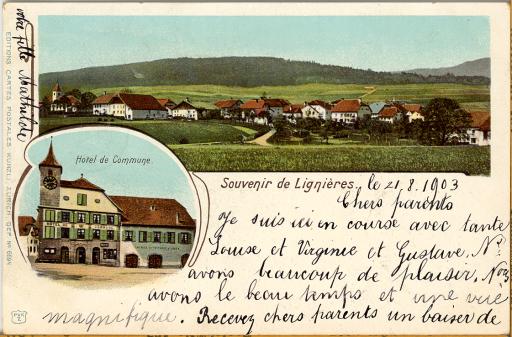 votre fille Mathilde
EDITIONS CARTES POSTALES KÜNZLI, ZURICH DEP. No 6694
Hotel de Commune.
Souvenir de Lignières.
le 21.8.1903
Chers parents
Je suis ici en course avec tante
Louise et Virginie et Gustave, Ns
avons beaucoup de plaisir, Nous
avons le beau temps et une vue
magnifique. Recevez chers parents un baiser de